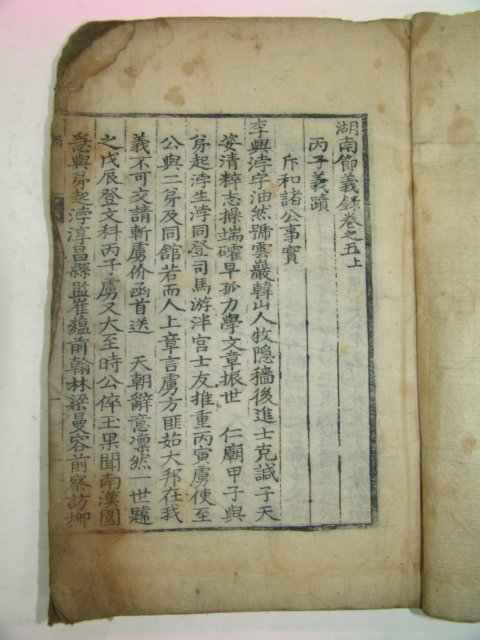 湖南節義錄卷之五上
丙子義蹟
斥和諸公事實
李興浡字油然號雲巖韓山人牧隱穡後進士克諴子天
姿清粹志操端確早孤力學文章振世 仁廟甲子與
弟起浡生浡同登司馬游泮宮士友推重丙寅虜使至
公與二弟及同館若而人上章言虜方匪茹大邦在我
義不可交請斬虜价函首送 天朝辭意凜然一世韙
之戊辰登文科丙子虜又大至時公倅王果聞南漢圍
急與弟起浡淳昌縣監崔蘊前翰林梁曼容前察訪柳